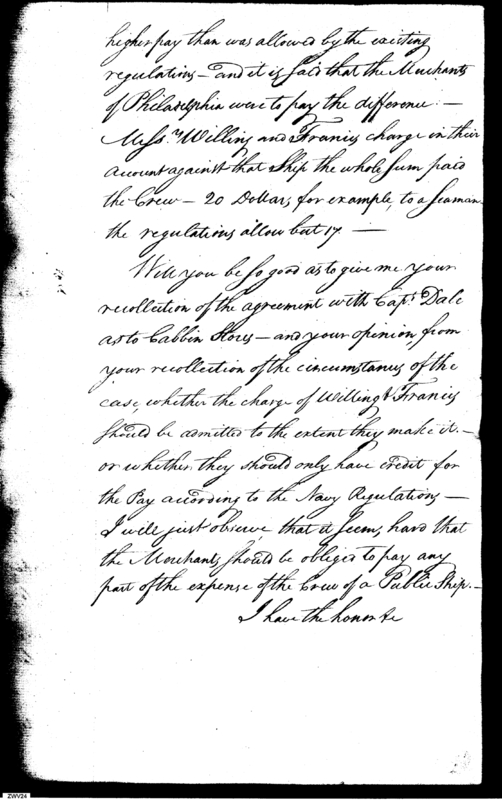 higher pay than was allowed by the existing
regulations — and it is said that the Merchants
of Philadelphia were to pay the difference. —
Mess.rs Willing and Francis charge in their
account against that Ship the whole sum paid
the Crew — 20 Dollars, for example, to a seaman
the regulations allow but 17. —
Will you be so good as to give me your
recollection of the agreement with Cap.t Dale
as to Cabbin Stores — and your opinion, from
your recollection of the circumstances of the
case, whether the charge of Willing & Francis
should be admitted to the extent they make it —
or whether they should only have credit for
the Pay according to the Navy Regulations —
I will just observe, that it seems, hard that
the Merchants should be obliged to pay any
part of the expense of the Crew of a Public Ship. —
I have the honor &c
ZWV24